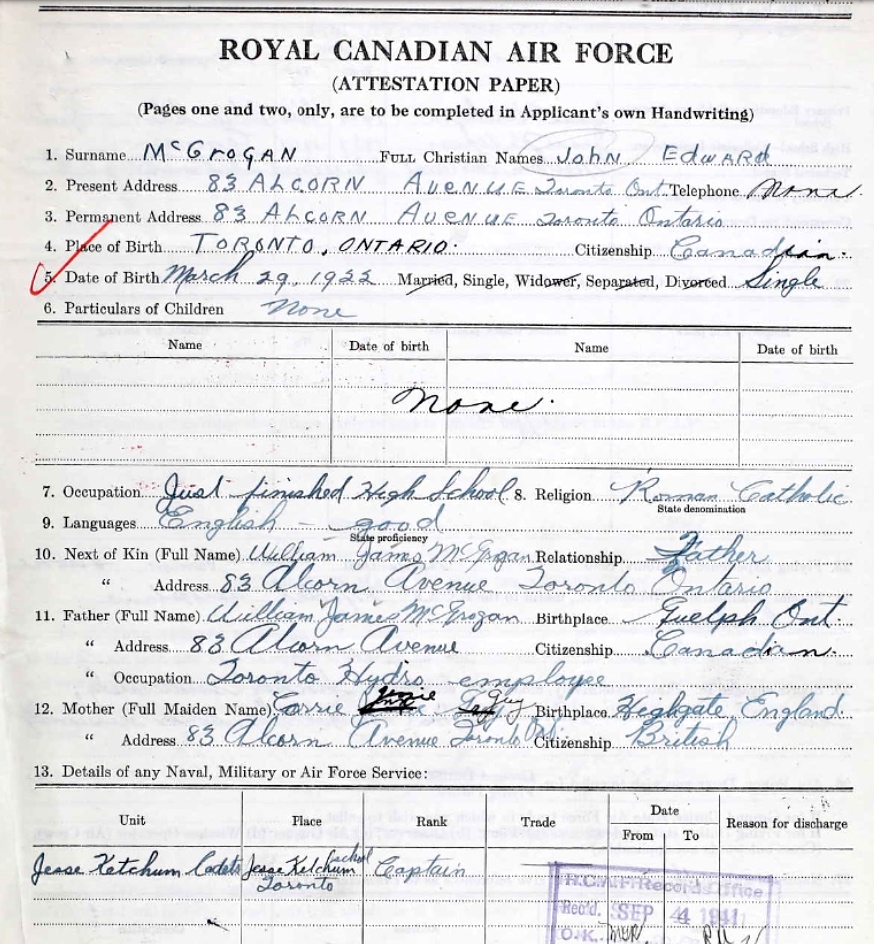 ROYAL CANADIAN AIR FORCE
(ATTESTATION PAPER)
(Pages one and two, only, are to be completed in Applicant's own Handwriting)
1. Surname McGrogan FULL Christian Names John Edward
2. Present Address 83 Alcorn Avenue Toronto Ont. Telephone None.
3. Permanent Address 83 Alcorn Avenue Toronto Ontario
4. Place of Birth TORONTO, ONTARIO. Citizenship Canadian.
5. Date of Birth March 29, 1922 Married, Single, Widower, Separated, Divorced Single
6. Particulars of Children None
Name Date of birth Name Date of birth
None.
7. Occupation Just finished High School 8. Religion Roman Catholic
State denomination
9. Languages English - good
State proficiency
10. Next of Kin (Full Name) William James McGrogan Relationship Father
" Address 83 Alcorn Avenue Toronto Ontario
11. Father (Full Name) William James McGrogan Birthplace Guelph Ont.
" Address 83 Alcorn Avenue Citizenship Canadian.
" Occupation Toronto Hydro employee
12. Mother (Full Maiden Name) Carrie Birthplace Highgate England.
" Address 83 Alcorn Avenue Toronto Ont. Citizenship British
13. Details of any Naval, Military or Air Force Service:
Unit Place Rank Trade Date Reason for discharge
From To
Jesse Ketchum Cadets Jesse Ketchum school Captain
Toronto
R.C.A.F. Records Office
Rec'd. SEP 4 1941
O.K.